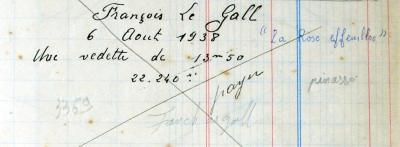 François Le Gall
6 Aout 1938 "La Rose effeuillée"
Une vedette de 13-50
22.240 payer pinasse
3359